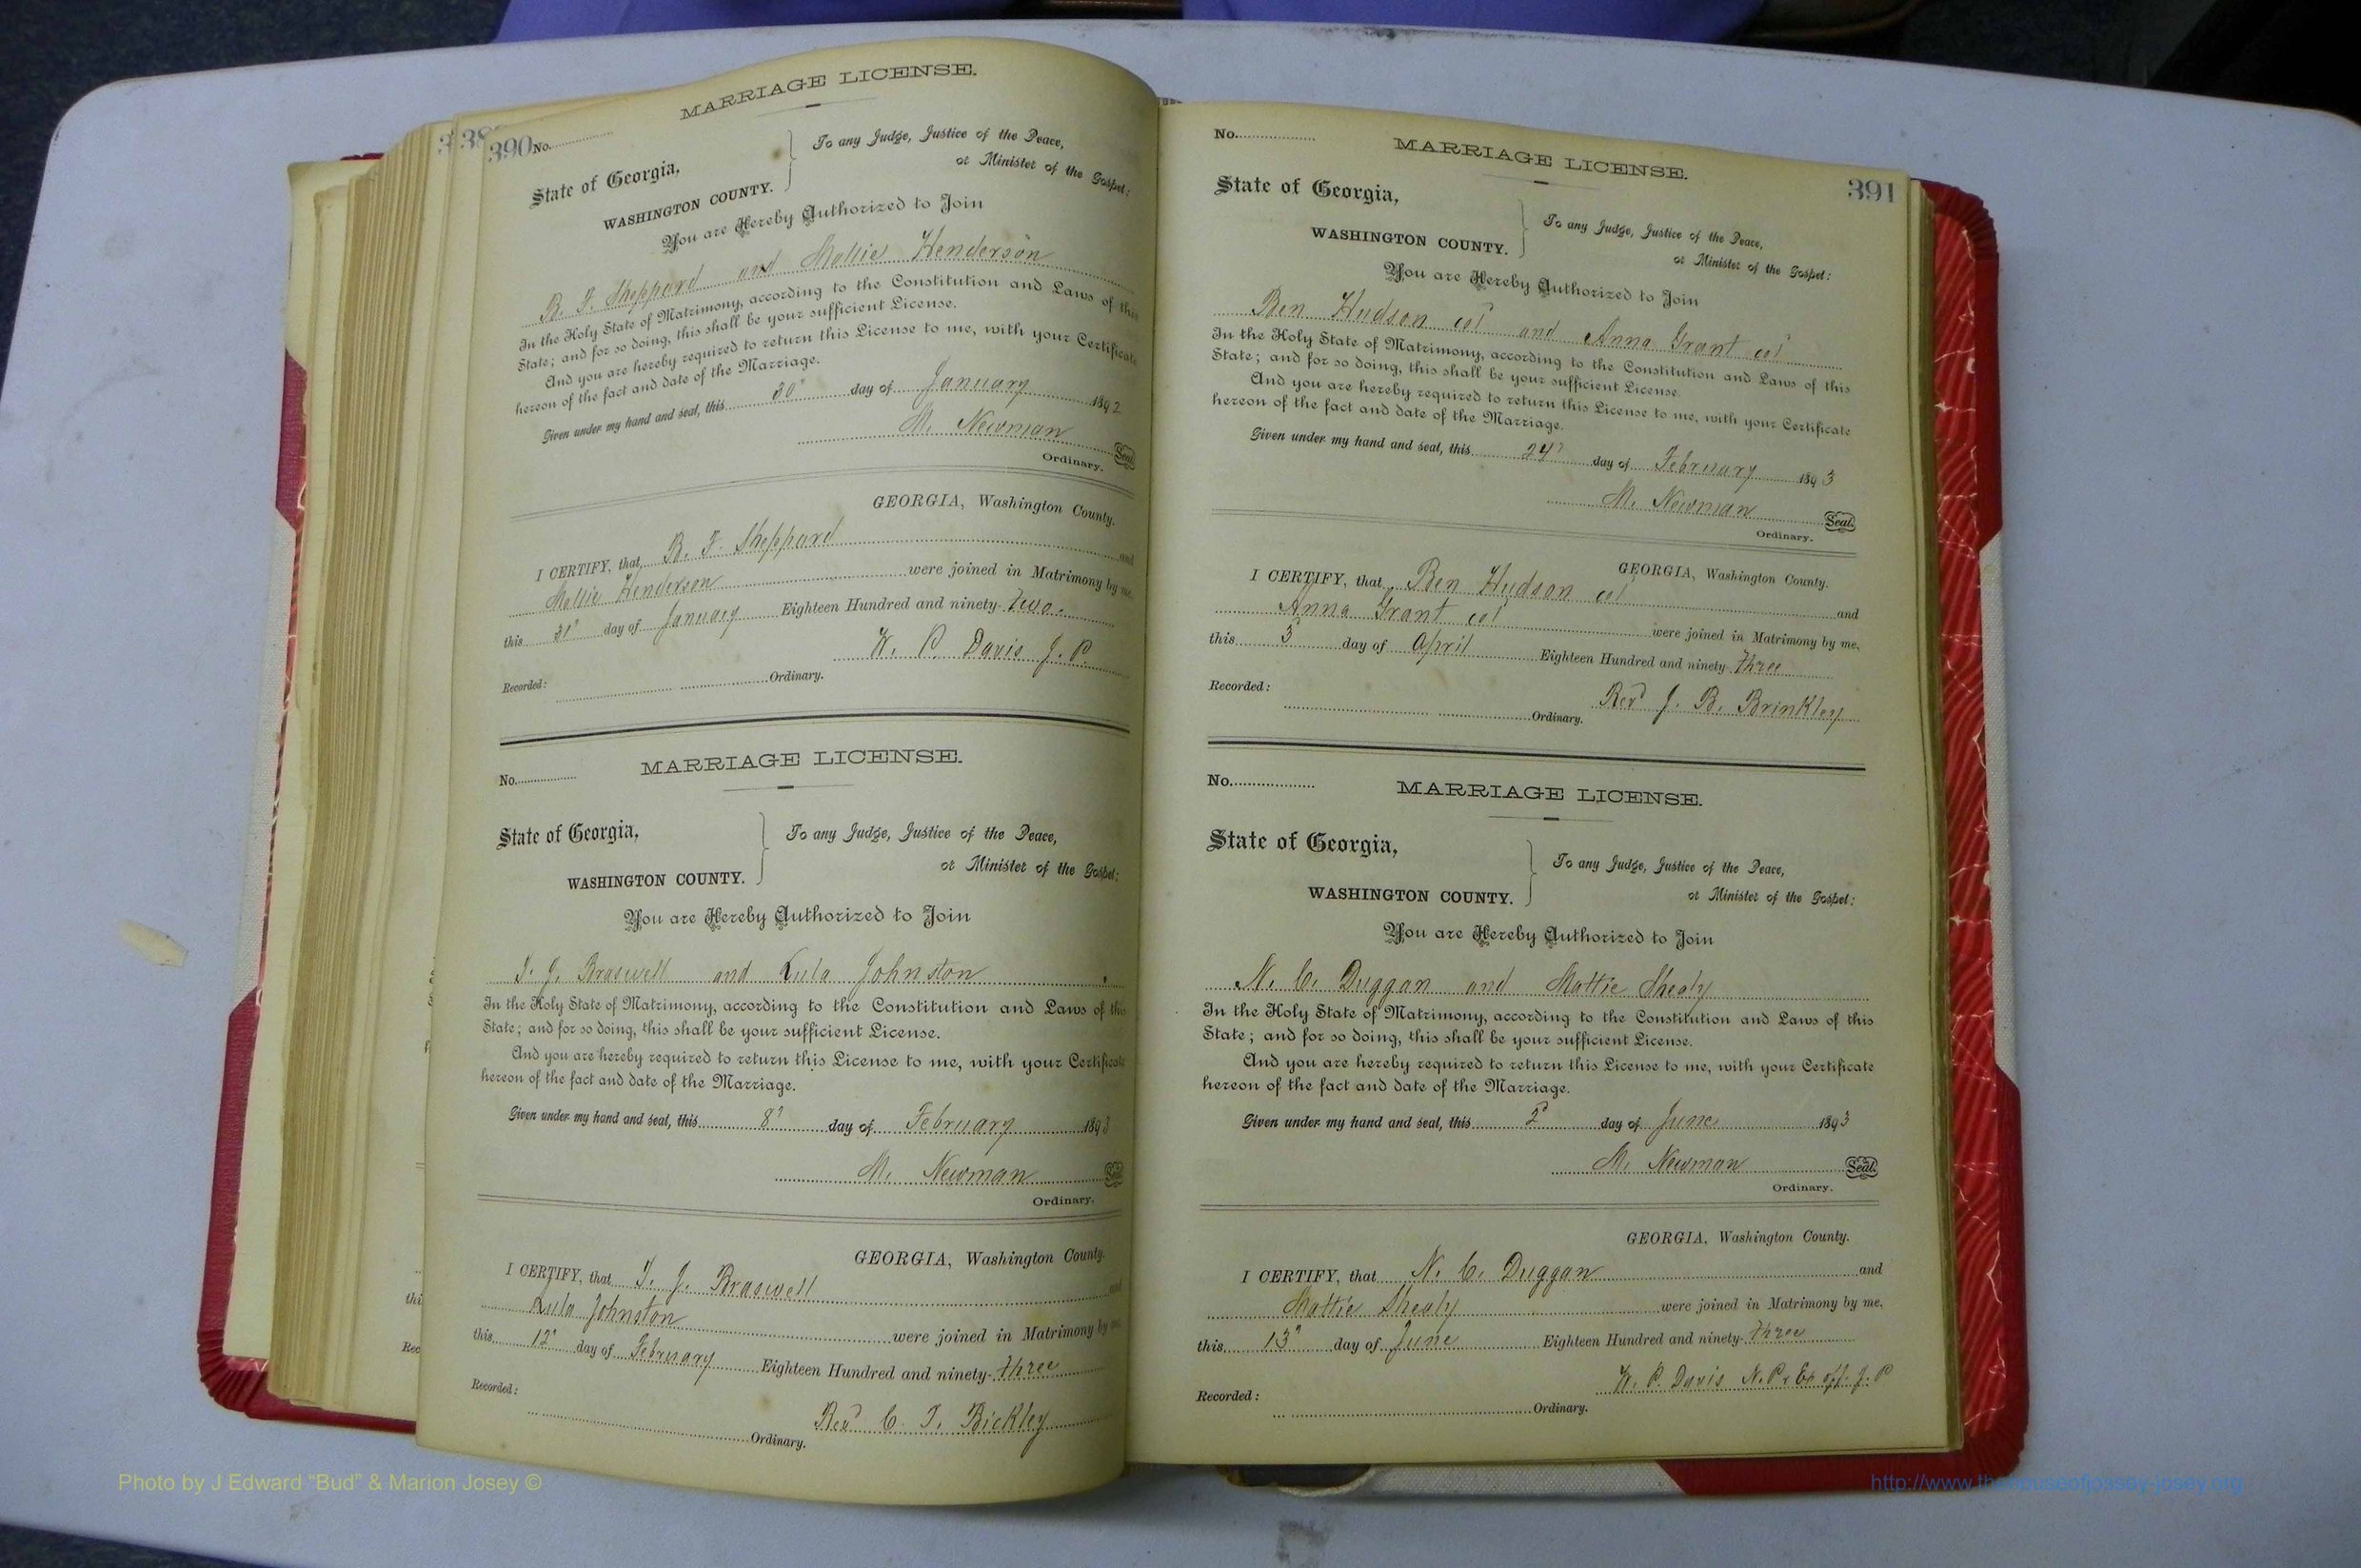 390 No.
MARRIAGE LICENSE.
State of Georgia,
WASHINGTON COUNTY.
To any Judge, Justice of the Peace,
or Minister of the Gospel:
You are Hereby Authorized to Join
B. F. Sheppard and Mollie Henderson
In the Holy State of Matrimony, according to the Constitution and Laws of this
State; and for so doing, this shall be your sufficient License.
And you are hereby required to return this License to me, with your Certificate
hereon of the fact and date of the Marriage.
Given under my hand and seal, this 30" day of January 1892
M. Newman Seal.
Ordinary.
GEORGIA, Washington County.
I CERTIFY, that B. F. Sheppard and
Mollie Henderson were joined in Matrimony by me,
this 31" day of January Eighteen Hundred and ninety-two.
W. P. Davis J. P.
Recorded:
Ordinary.
No.
MARRIAGE LICENSE.
State of Georgia,
WASHINGTON COUNTY.
To any Judge, Justice of the Peace,
or Minister of the Gospel:
You are Hereby Authorized to Join
T. J. Braswell and Lula Johnston
In the Holy State of Matrimony, according to the Constitution and Laws of this
State; and for so doing, this shall be your sufficient License.
And you are hereby required to return this License to me, with your Certificate
hereon of the fact and date of the Marriage.
Given under my hand and seal, this 8" day of February 1893
M. Newman Seal
Ordinary.
GEORGIA, Washington County.
I CERTIFY, that T. J. Braswell and
Lula Johnston were joined in Matrimony by me
this 12" day of February Eighteen Hundred and ninety-three
Recorded:
Rev C. T. Bickley
Ordinary.
No.
MARRIAGE LICENSE.
391
State of Georgia,
WASHINGTON COUNTY.
To any Judge, Justice of the Peace,
or Minister of the Gospel:
You are Hereby Authorized to Join
Ben Hudson col and Anna Grant col
In the Holy State of Matrimony, according to the Constitution and Laws of this
State; and for so doing, this shall be your sufficient License.
And you are hereby required to return this License to me, with your Certificate
hereon of the fact and date of the Marriage.
Given under my hand and seal, this 24" day of February 1893
M. Newman Seal.
Ordinary.
GEORGIA, Washington County.
I CERTIFY, that Ben Hudson col and
Anna Grant col were joined in Matrimony by me,
this 3 day of April Eighteen Hundred and ninety-three
Recorded:
Rev J. B. Brinkley
Ordinary.
No.
MARRIAGE LICENSE.
State of Georgia,
WASHINGTON COUNTY.
To any Judge, Justice of the Peace,
or Minister of the Gospel:
You are Hereby Authorized to Join
N. C. Duggan and Mattie Shealy
In the Holy State of Matrimony, according to the Constitution and Laws of this
State; and for so doing, this shall be your sufficient License.
And you are hereby required to return this License to me, with your Certificate
hereon of the fact and date of the Marriage.
Given under my hand and seal, this 2" day of June 1893
M. Newman Seal.
Ordinary.
GEORGIA, Washington County.
I CERTIFY, that N. C. Duggan and
Mattie Shealy were joined in Matrimony by me,
this 13" day of June Eighteen Hundred and ninety-three
W. P. Davis N. P. & Ex off. J. P
Recorded:
Ordinary.
Photo by J Edward “Bud” & Marion Josey ©